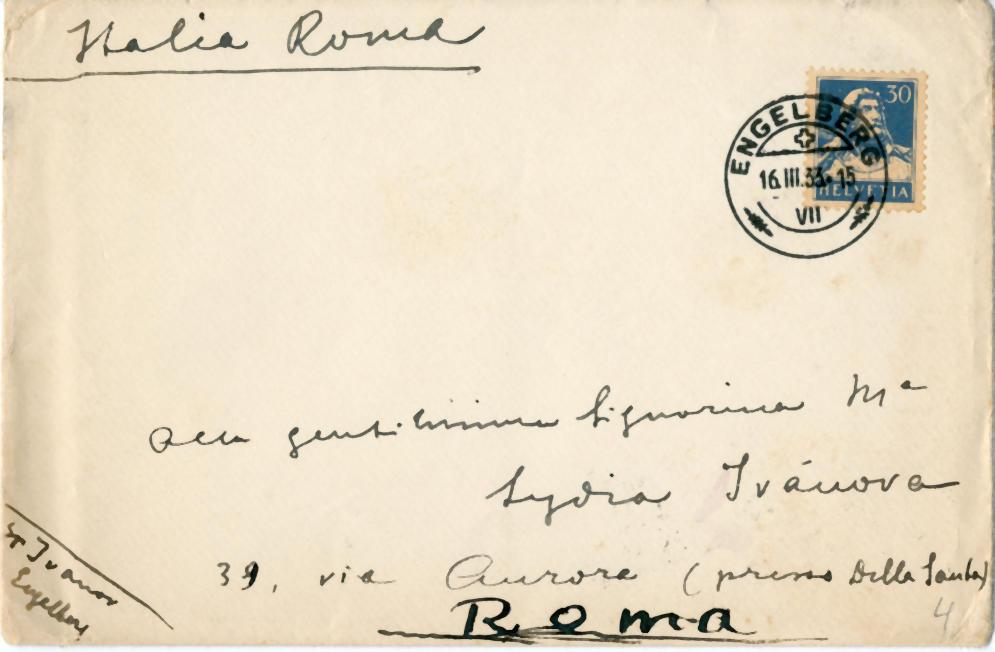 Italia Roma
30
HELVETIA
ENGELBERG
16.III.33.-15
VII
alla gentilissima Signorina Mª
Lydia Ivánova
39, via Aurora (presso Della Santa)
Roma
Ivanov
Engelberg
4